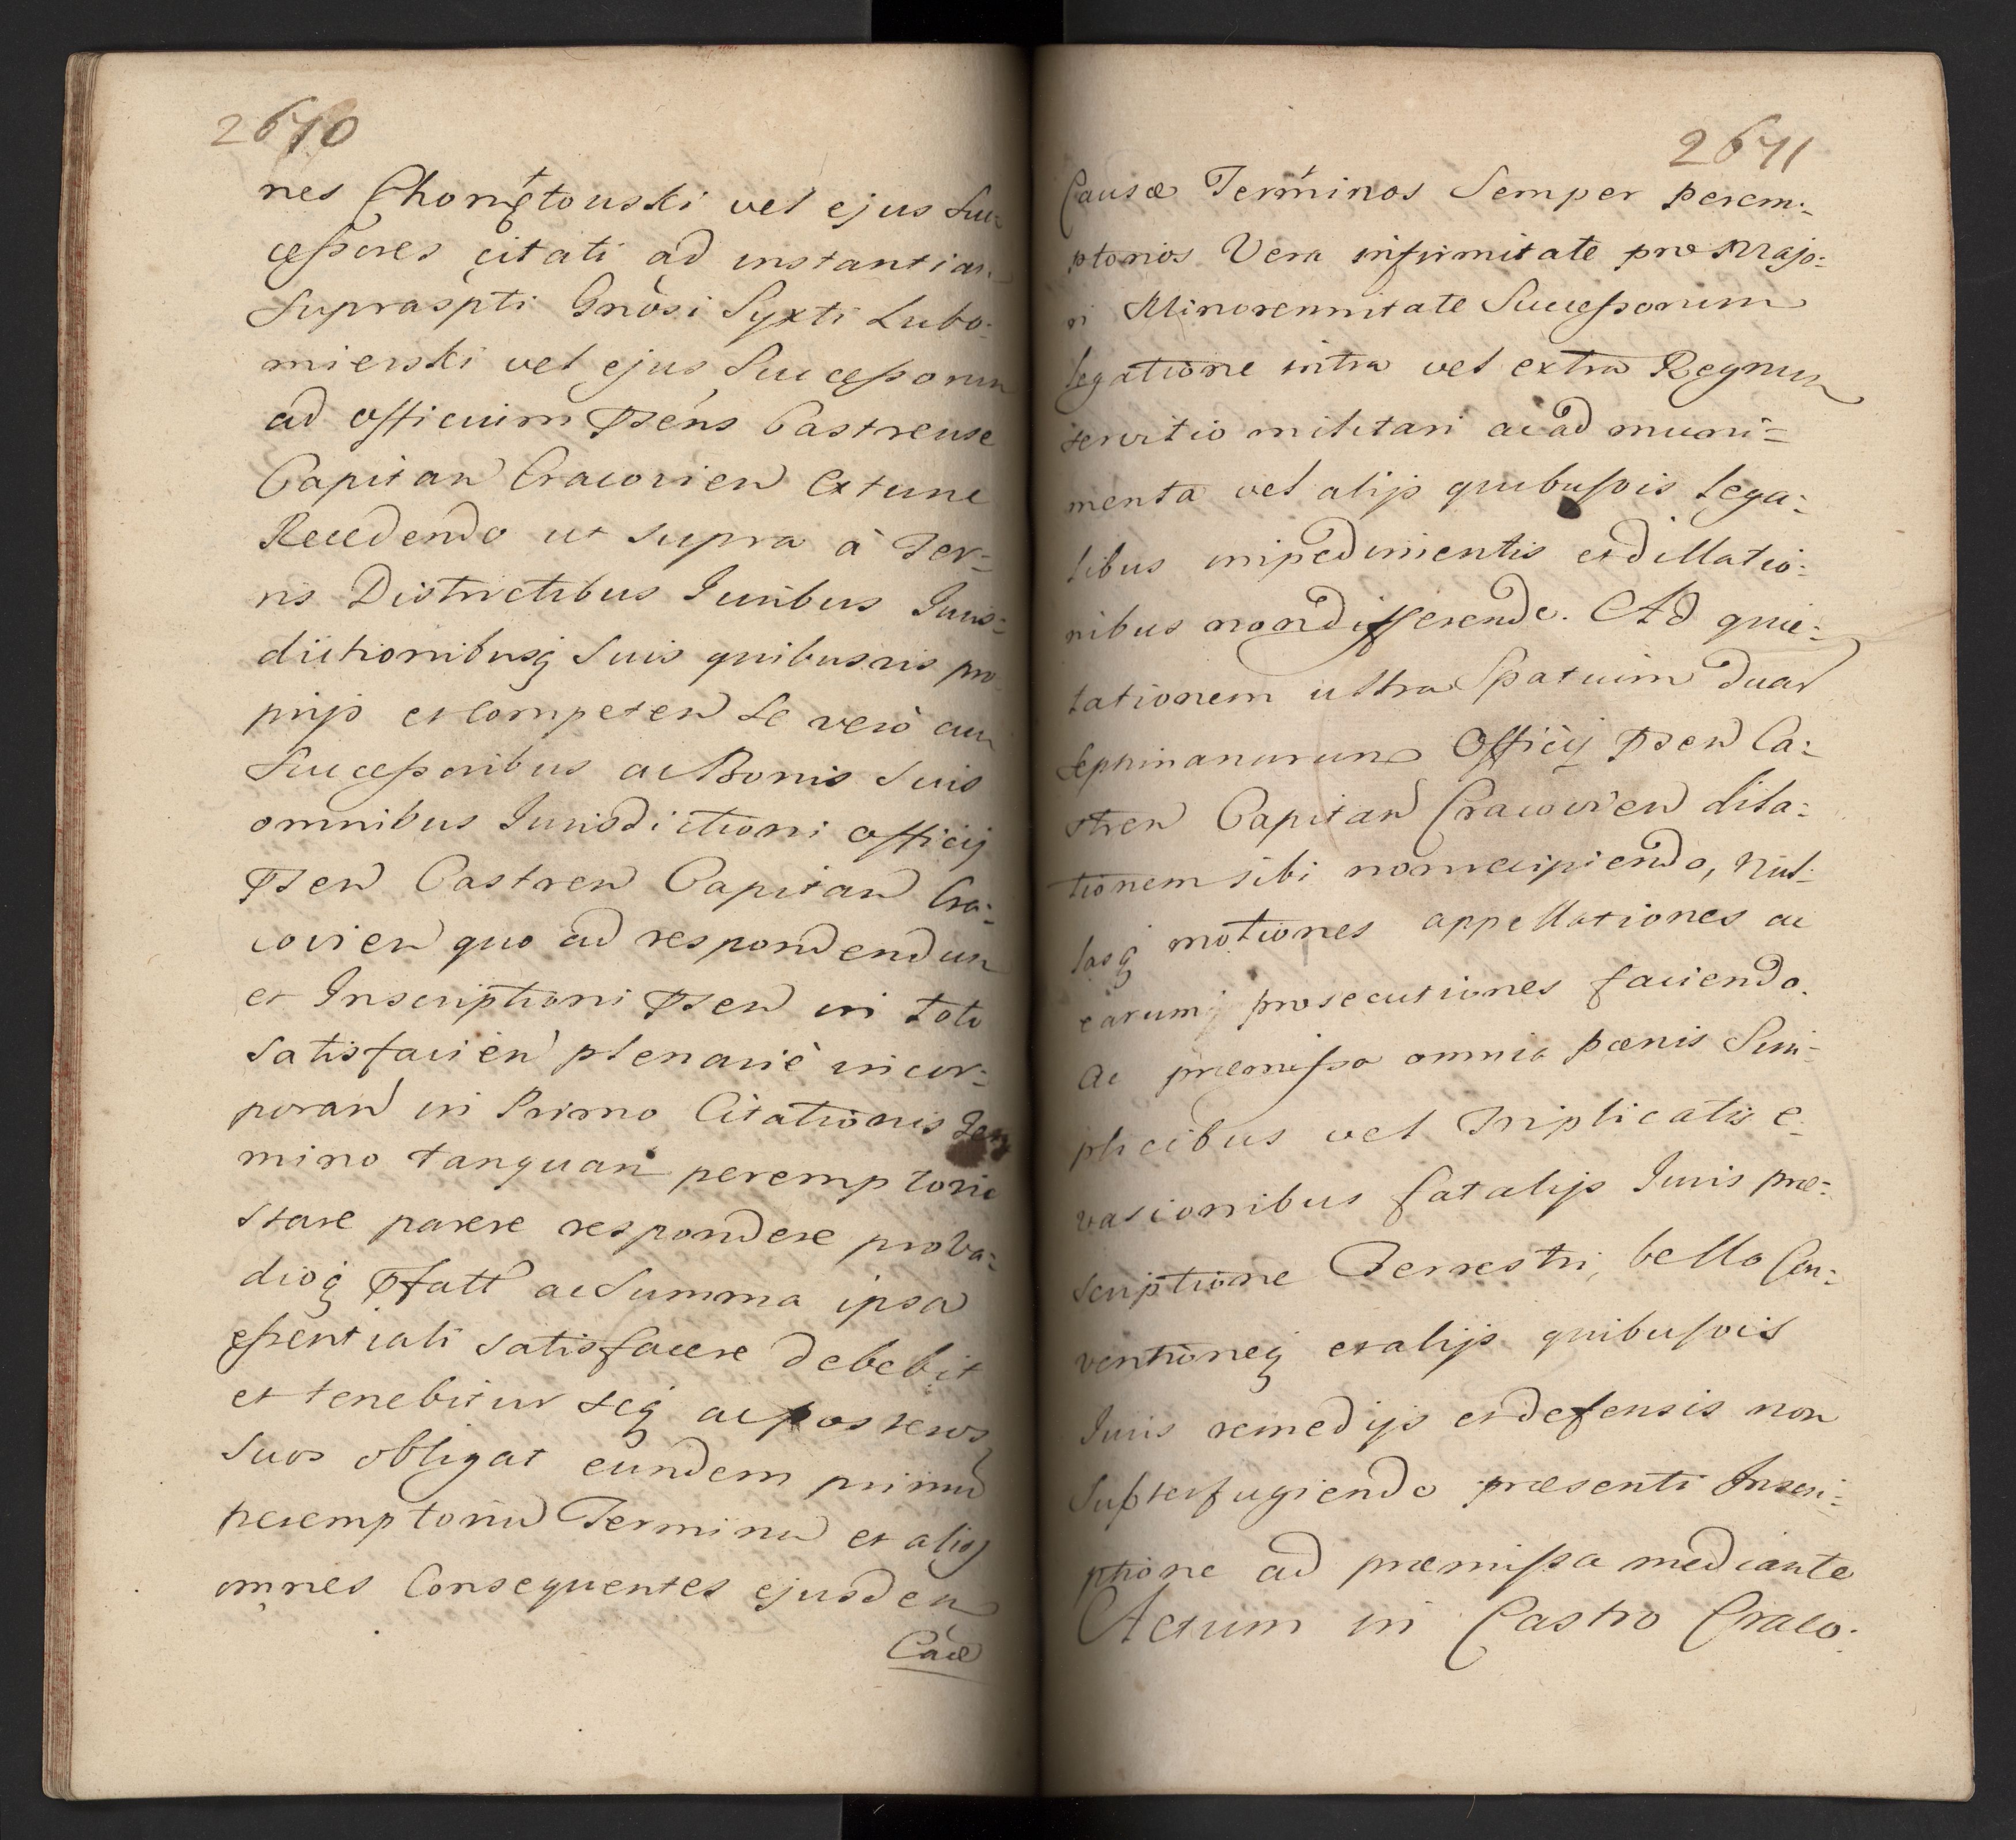 2670
nes Chongtouski vel ejus Suc-
cessores citati ad instantiam
Supraspti Gnosi Syxti Lubo-
mierski vel ejus Successorum
ad officium Psens Castrense
Capitan Cracovien Extunc
Recedendo ut supra à Ter=
ris Districtibus Juribus Juris=
dictionibusq suis quibusvis pro
prijs et competen Se verò cum
Successoribus ac Bonis Suis
omnibus Jurisdictioni officij
Psen Castren Capitan Cra-
covien quo ad respondendum
et Inscriptioni Psen in toto
satisfacien plenariè incor=
poran in Primo Citationis Ter
mino tanquam peremptorio
stare parere respondere
ac Summa ipsa
essentiali satisfacere debebit
et tenebitur seq ac posteros
suos obligat eundem primu
peremptoriu Terminu et alios
omnes Consequentes ejusdem
Cace
2671
Causæ Terminos Semper perem-
ptorios Vera infirmitate pro Majo-
ri Minorennitate Successorum
legatione intra vel extra Regnum
servitio militari ac ad muni=
menta vel alijs quibusvis lega-
libus impedimentis et dillatio-
nibus non differendo. Ad quie-
tationem ultra Spatium duar
septimanarum Officij Psen Ca-
stren Capitan Cracovien dila-
tionem sibi non recipiendo, Nul-
lasq motiones appellationes ac
earumq prosecutiones faciendo.
Ac præmissa omnia pænis Sim-
plicibus vel Triplicatis e-
vasionibus fatalijs Juris præ-
scriptione Terrestri, bello Con-
ventioneq et alijs quibusvis
Juris remedijs et defensis non
Subterfugiendo præsenti Inscri-
ptione ad præmissa mediante
Actum in Castro Craco-